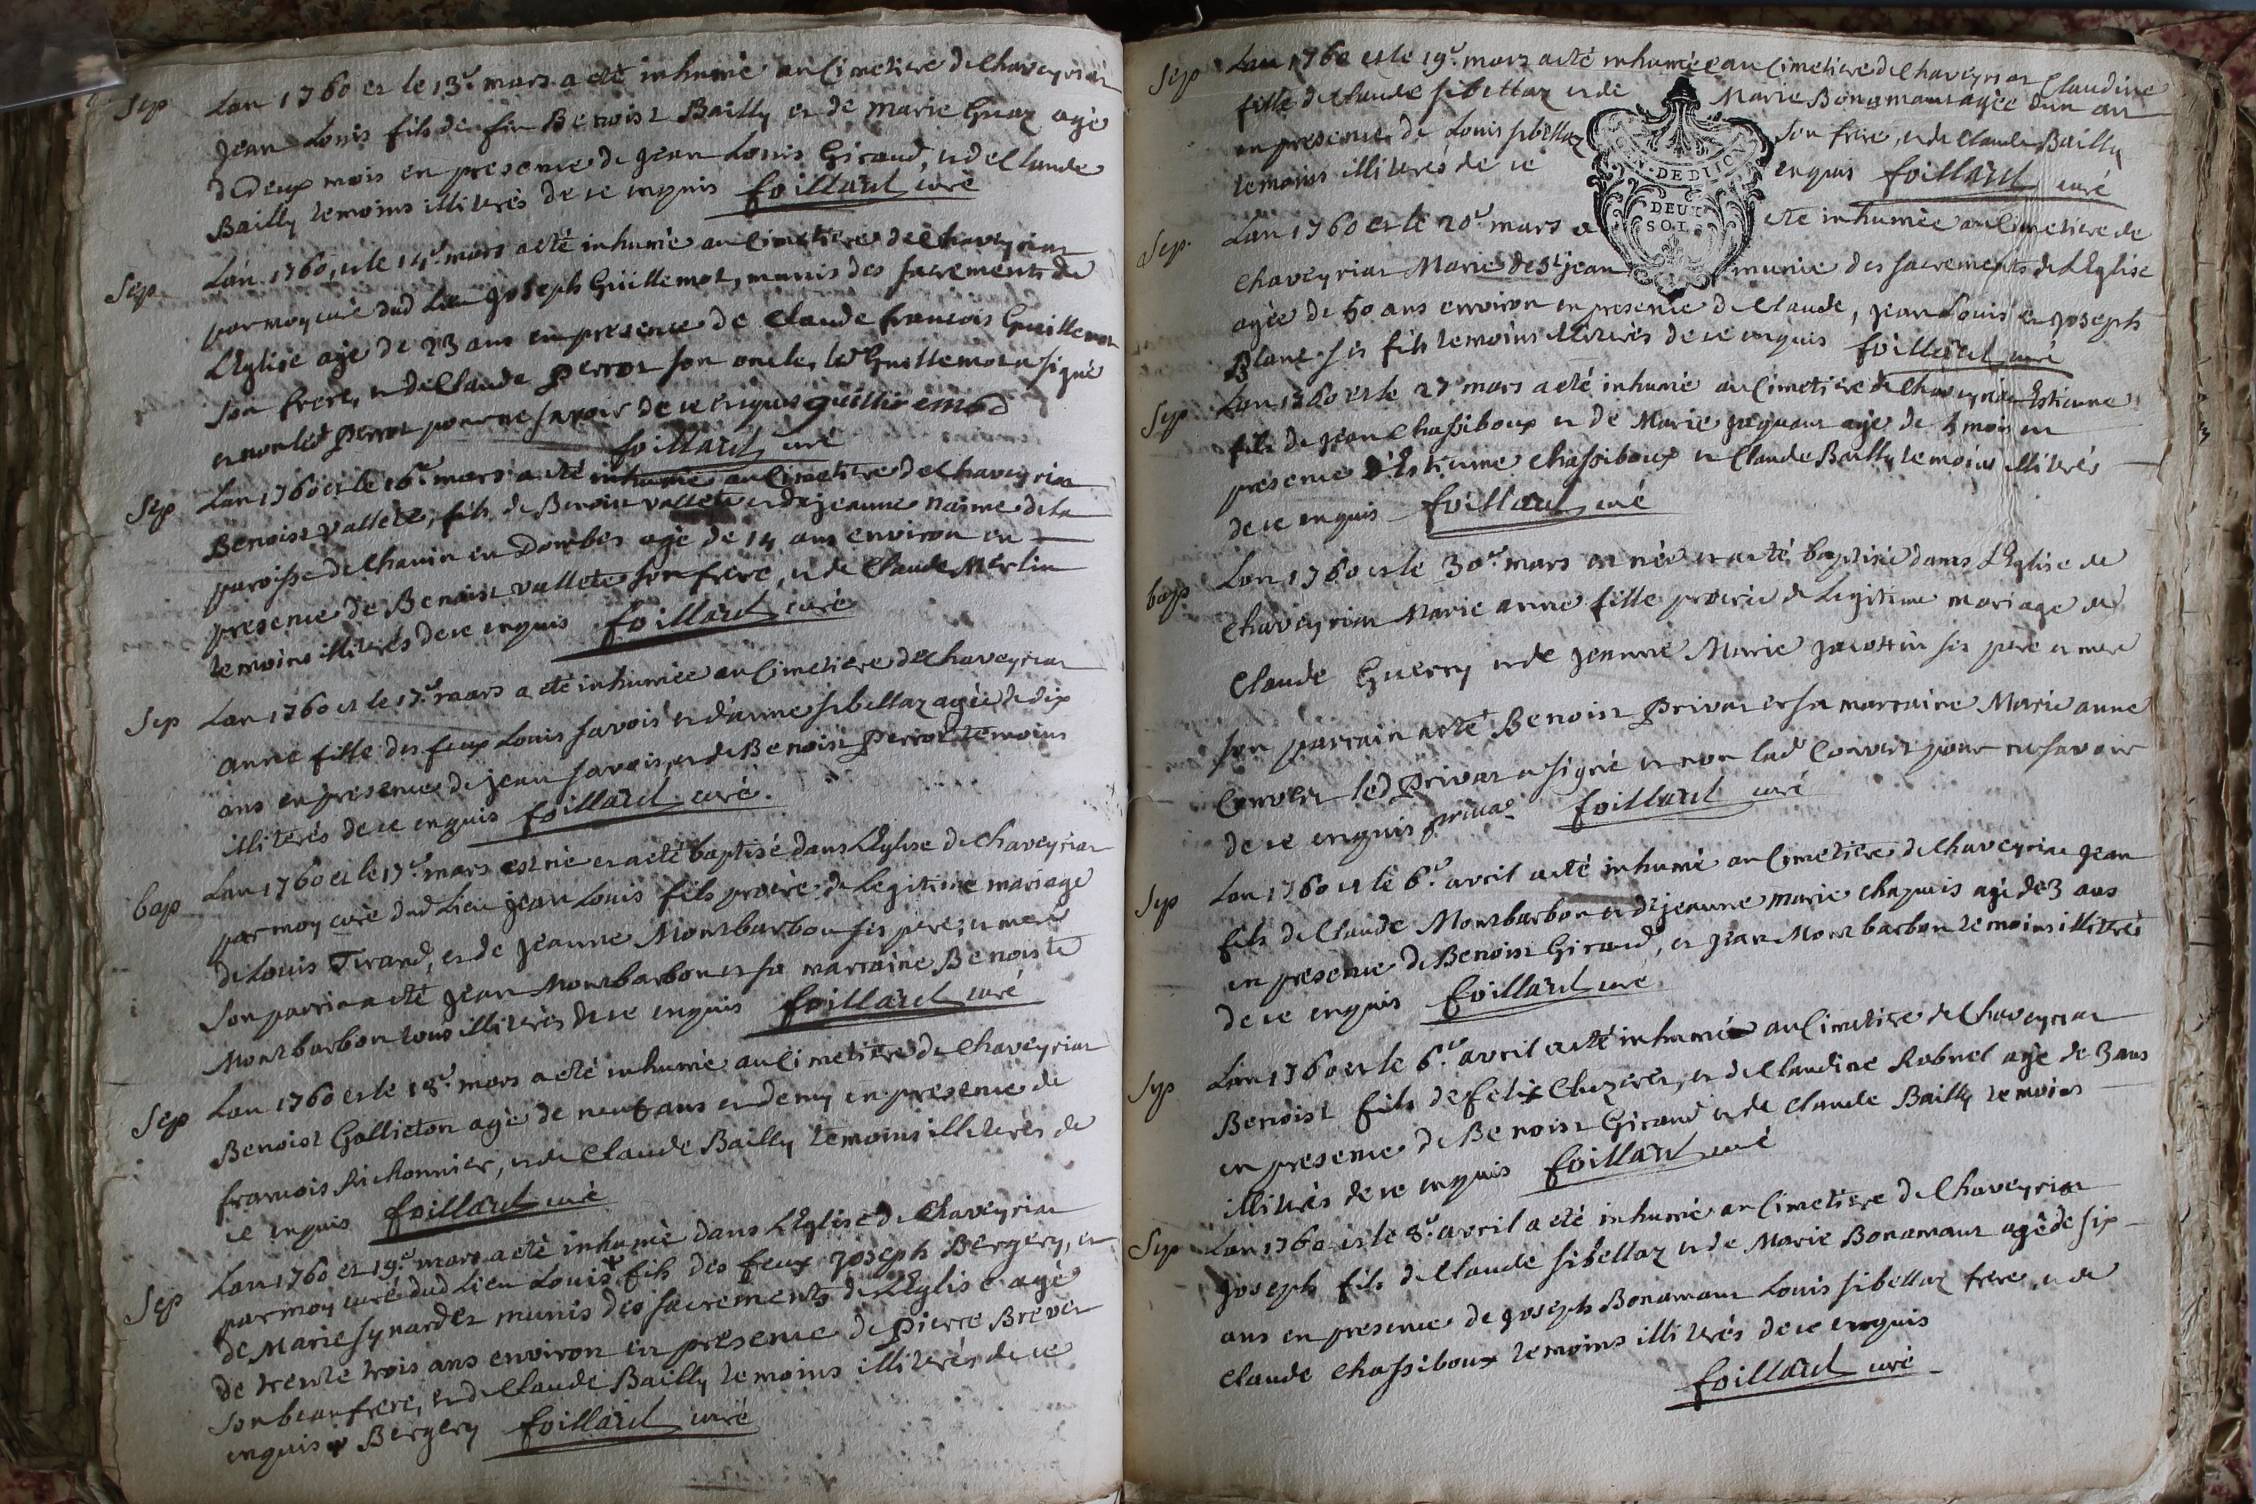 Sep Lan 1760 et le 13e. mars a eté inhumé au Cimetiere de Chaveyriat
Jean Louis fils de feu Benoist Bailly et de Marie Gras agé
de deux mois en presence de Jean Louis Giraud, et de Claude
Bailly temoins illiterés de ce enquis foillard curé
Sep Lan 1760, et le 14e. mars a eté inhumé au Cimetiere de Chaveyriat
par moy curé dud Lieu Joseph Guillemot, munis des sacrements de
LEglise agé de 23 ans en presence de Claude francois Guillemot
son frere, et de Claude perrot son oncle, led Guillemot a signé
et non led perrot pour ne savoir de ce enquis guillie emod
foillard curé
Sep Lan 1760 et le 16e. mars a eté inhumé au Cimetiere de Chaveyriat
Benoist vallete, fils de Benoist vallete et de jeanne naime de la
paroisse de Chanin en Dombes agé de 14 ans environ en
presence de Benoist vallete son frere, et de Claude Merlin
temoins illiterés de ce enquis foillard curé
Sep Lan 1760 et le 17e. mars a eté inhumée au Cimetiere de Chaveyriat
anne fille des feux Louis savois et d'anne sibellaz agée de dix
ans en presence de jean savois, et de Benoist perrot temoins
illiterés de ce enquis foillard curé.
bap Lan 1760 et le 17e. mars est nie et a eté baptisé dans LEglise de Chaveyriat
par moy curé dud Lieu jean Louis fils procrée de Legitime mariage
de Louis Tirand, et de Jeanne Montbarbon ses pere, et mere
son parrin a eté Jean Montbarbon et sa marraine Benoiste
Montbarbon tous illiterés de ce enquis foillard curé
Sep Lan 1760 et le 18e. mars a eté inhumé au Cimetiere de Chaveyriat
Benoist Gallicton agé de neuf ans et demy en presence de
francois Richonnier, et de Claude Bailly temoins illiterés de
ce enquis foillard curé
Sep Lan 1760 et 19e. mars a eté inhumé dans LEglise de Chaveyriat
par moy curé dud Lieu Louis fils des feux Joseph Bergery, et
de Marie synardet munis des sacrements de LEglise agé
de trente trois ans environ en presence de pierre Brevet
son beaufrere, et de Claude Bailly temoins illiterés de ce
enquis Bergery foillard curé
Sep Lan 1760 et le 19e. mars a eté inhumée au Cimetiere de Chaveyriat Claudine
fille de Claude sibellaz et de Marie Bonamour agée d'un an
en presence de Louis sibellaz son frere, et de Claude Bailly
temoins illiterés de ce enquis foillard curé
DE DIJON
DEUX
SOLS
Sep. Lan 1760 et le 20e. mars a eté inhumée au Cimetiere de
Chaveyriat Marie de St jean munie des sacrements de LEglise
agée de 60 ans environ en presence de Claude, jean Louis et joseph
Blanc ses fils temoins illiterés de ce enquis foillard curé
Sep Lan 1760 et le 27e mars a eté inhumé au Cimetiere de Chaveyriat Estienne
fils de jean Chassiboux et de Marie paquaut agé de 4 mois en
presence d'Estienne Chassiboux et Claude Bailly temoins illiterés
de ce enquis foillard curé
bap Lan 1760 et le 30e. mars on née et a eté baptisée dans LEglise de
Chaveyriat Marie anne fille procrée de Legitime mariage de
Claude Guerry et de jeanne Marie jacottin ses pere et mere
son parrain a eté Benoist Privat et sa marraine Marie anne
Convert led Privat a signé et non lad Convert pour ne savoir
de ce enquis privat foillard curé
Sep Lan 1760 et le 6e. avril a eté inhumé au Cimetiere de Chaveyriat jean
fils de Claude Montbarbon et de jeanne marie Chapuis agé de 3 ans
en presence de Benoist Giraud, et jean Montbarbon temoins illiterés
de ce enquis foillard curé
Sep Lan 1760 et le 6e. avril a eté inhumé au Cimetiere de Chaveyriat
Benoist fils de felix Cluzeret, et de Claudine Robuel agé de 3 ans
en presence de Benoist Giraud et de Claude Bailly temoins
illiterés de ce enquis foillard curé
Sep Lan 1760 et le 8e. avril a eté inhumé au Cimetiere de Chaveyriat
joseph fils de Claude sibellaz et de Marie Bonamour agé de six
ans en presence de joseph Bonamour Louis sibellaz frere, et de
Claude Chassiboux temoins illiterés de ce enquis
foillard curé